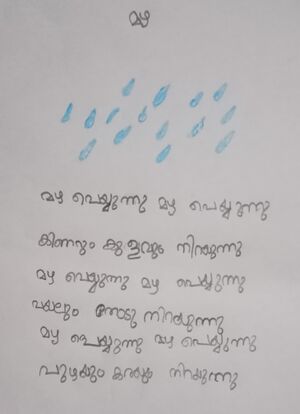 മഴ
മഴ പെയ്യുന്നു മഴ പെയ്യുന്നു
കിണറും കുളവും നിറയുന്നു
മഴ പെയ്യുന്നു മഴ പെയ്യുന്നു
വയലും തോടു നിറയുന്നു
മഴ പെയ്യുന്നു മഴ പെയ്യുന്നു
പുഴയും കടലും നിറയുന്നു